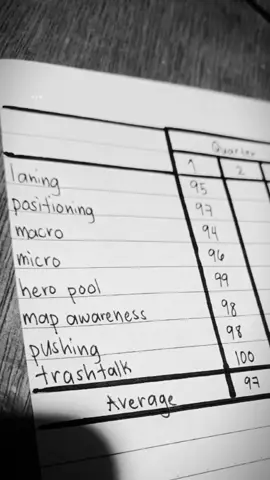 Quarter
1 2
laning 95
positioning 97
macro 94
micro 96
hero pool 99
map awareness 98
pushing 98
trashtalk 100
Average 97